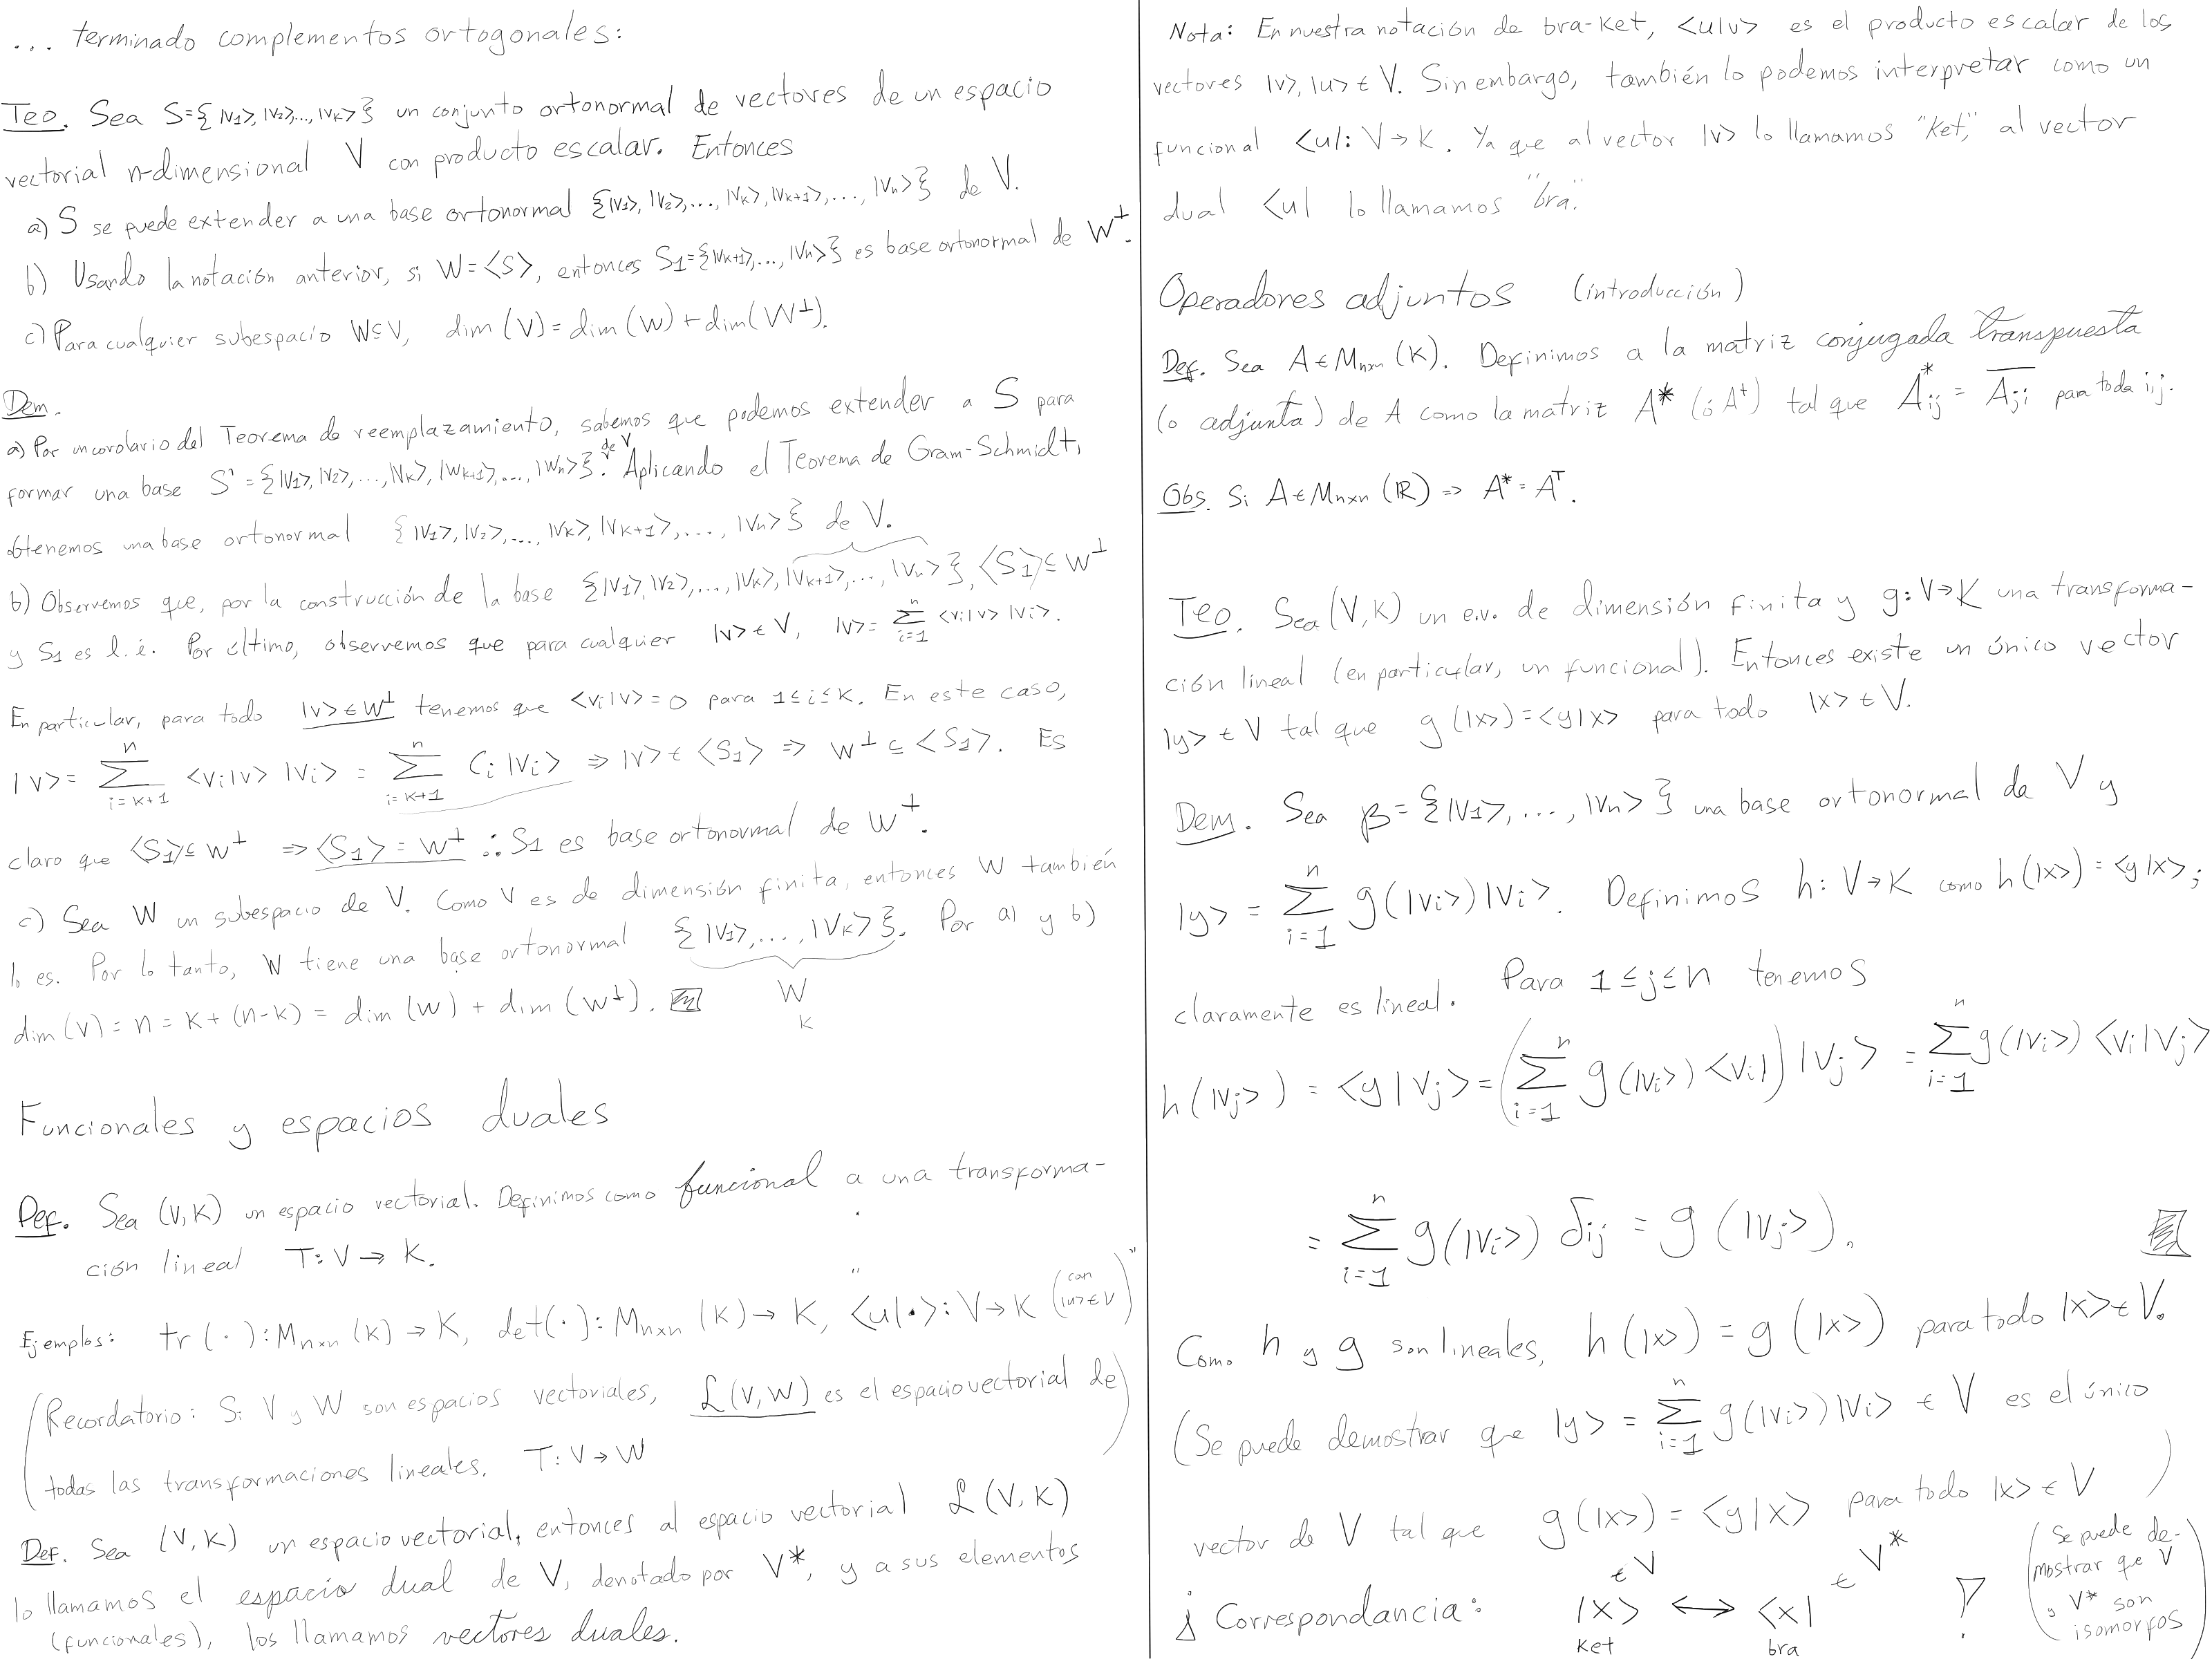 ... terminado complementos ortogonales:
Teo. Sea S={|v1>,|v2>,...,|vk>} un conjunto ortonormal de vectores de un espacio
vectorial n-dimensional V con producto escalar. Entonces
a) S se puede extender a una base ortonormal {|v1>, |v2>, ..., |vk>, |vk+1>, ..., |vn>} de V.
b) Usando la notación anterior, si W=<S>, entonces S1={|vk+1>,...,|vn>} es base ortonormal de W⊥.
c) Para cualquier subespacio W⊆V, dim (V) = dim (W) + dim(W⊥).
Dem.
a) Por un corolario del Teorema de reemplazamiento, sabemos que podemos extender a S para
formar una base S' = {|v1>, |v2>, ..., |vk>, |wk+1>, ..., |wn>} de V. Aplicando el Teorema de Gram-Schmidt,
obtenemos una base ortonormal {|v1>, |v2>, ..., |vk>, |vk+1>, ..., |vn>} de V.
b) Observemos que, por la construcción de la base {|v1>, |v2>, ..., |vk>, |vk+1>, ..., |vn>}, <S1>⊆W⊥
y S1 es l.i. Por último, observemos que para cualquier |v> ∈ V, |v> = ∑_{i=1}^{n} <vi|v> |vi>.
En particular, para todo |v>∈W⊥ tenemos que <vi|v>=0 para 1≤i≤k. En este caso,
|v> = ∑_{i=k+1}^{n} <vi|v> |vi> = ∑_{i=k+1}^{n} Ci |vi> ⇒ |v> ∈ <S1> ⇒ W⊥ ⊆ <S1>. Es
claro que <S1>⊆W⊥ ⇒ <S1> = W⊥ ∴ S1 es base ortonormal de W⊥.
c) Sea W un subespacio de V. Como V es de dimensión finita, entonces W también
lo es. Por lo tanto, W tiene una base ortonormal {|v1>, ..., |vk>}. Por a) y b)
dim (V) = n = k + (n-k) = dim (W) + dim (W⊥).
W
k
Funcionales y espacios duales
Def. Sea (V,K) un espacio vectorial. Definimos como funcional a una transforma-
ción lineal T: V → K.
Ejemplos: tr (·): Mnxn (K) → K, det(·): Mnxn (K) → K, "<u|·>: V→K (con |u>∈V)"
(Recordatorio: Si V y W son espacios vectoriales, ℒ(V,W) es el espacio vectorial de
todas las transformaciones lineales. T: V→W)
Def. Sea (V,K) un espacio vectorial, entonces al espacio vectorial ℒ(V,K)
lo llamamos el espacio dual de V, denotado por V*, y a sus elementos
(funcionales), los llamamos vectores duales.
Nota: En nuestra notación de bra-ket, <u|v> es el producto escalar de los
vectores |v>, |u> ∈ V. Sin embargo, también lo podemos interpretar como un
funcional <u|: V→K. Ya que al vector |v> lo llamamos "ket," al vector
dual <u| lo llamamos "bra."
Operadores adjuntos (introducción)
Def. Sea A∈Mnxn (K). Definimos a la matriz conjugada transpuesta
(o adjunta) de A como la matriz A* (ó A†) tal que A*ij = \overline{Aji} para toda i,j.
Obs. Si A∈Mnxn (ℝ) ⇒ A* = Aᵀ.
Teo. Sea (V,K) un e.v. de dimensión finita y g: V→K una transforma-
ción lineal (en particular, un funcional). Entonces existe un único vector
|y> ∈ V tal que g (|x>) = <y|x> para todo |x> ∈ V.
Dem. Sea β = {|v1>, ..., |vn>} una base ortonormal de V y
|y> = ∑_{i=1}^{n} g(|vi>)|vi>. Definimos h: V→K como h(|x>) = <y|x>;
claramente es lineal. Para 1≤j≤n tenemos
h(|vj>) = <y|vj> = (∑_{i=1}^{n} g(|vi>) <vi|) |vj> = ∑_{i=1}^{n} g(|vi>) <vi|vj>
= ∑_{i=1}^{n} g(|vi>) δij = g (|vj>).
Como h y g son lineales, h(|x>) = g (|x>) para todo |x>∈V.
(Se puede demostrar que |y> = ∑_{i=1}^{n} g(|vi>)|vi> ∈ V es el único
vector de V tal que g(|x>) = <y|x> para todo |x> ∈ V)
¡ Correspondancia: |x> ∈ V ↔ <x| ∈ V* !
ket bra
(Se puede de-
mostrar que V
y V* son
isomorfos)